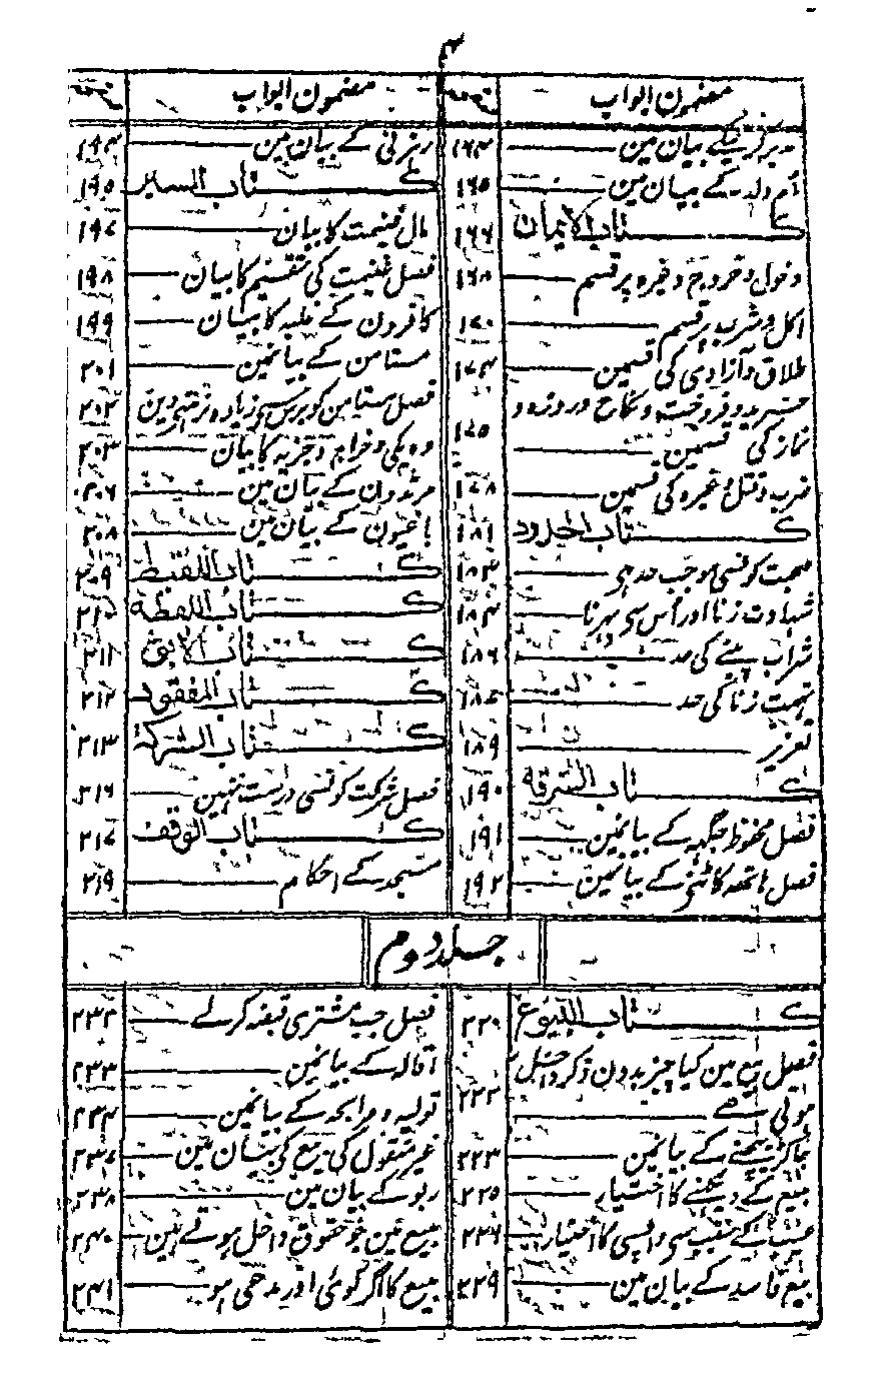 ۴
مضمون ابواب
صفحہ
مدبر کرنیکے بیان مین ۱۶۳
ام ولد کے بیان مین ۱۶۵
کتاب الایمان ۱۶۶
دخول وخروج وغیرہ پر قسم ۱۶۸
اکل وشرب پر قسم ۱۷۰
طلاق وآزادی کی قسمین ۱۷۳
خرید وفروخت ونکاح وروزہ و
نماز کی قسمین ۱۷۵
ضرب وقتل وغیرہ کی قسمین ۱۷۸
کتاب الحدود ۱۸۱
صحبت کونسی موجب حد ہی ۱۸۳
شہادت زنا اور اس سی پہرنا ۱۸۴
شراب پینے کی حد ۱۸۶
تہمت زنا کی حد ۱۸۷
تعزیر ۱۸۹
کتاب السرقة ۱۹۰
فصل محفوظ جگہہ کے بیانمین ۱۹۱
فصل ہاتھہ کاٹنے کے بیانمین ۱۹۲
مضمون ابواب
صفحہ
رہزنی کے بیان مین ۱۹۴
کتاب السیر ۱۹۵
مال غنیمت کا بیان ۱۹۷
فصل غنیمت کی تقسیم کا بیان ۱۹۸
کافرون کے غلبہ کا بیان ۱۹۹
مستامن کے بیانمین ۲۰۱
فصل مستامن کو برس سی زیادہ نرہنی دین ۲۰۲
دہ یکی وخراج وجزیہ کا بیان ۲۰۳
مرتدون کے بیان مین ۲۰۶
باغیون کے بیان مین ۲۰۸
کتاب اللقیط ۲۰۹
کتاب اللقطة ۲۱۰
کتاب الابق ۲۱۱
کتاب المفقود ۲۱۲
کتاب الشركة ۲۱۳
فصل شرکت کونسی درست نہین ۲۱۶
کتاب الوقف ۲۱۷
مسجد کے احکام ۲۱۹
جلد دوم
کتاب البیوع ۲۲۰
فصل بیع مین کیا چیز بدون ذکر داخل
ہوتی ہے ۲۲۲
جاکڑ بیچنے کے بیانمین ۲۲۳
مبیع کے دیکھنے کا اختیار ۲۲۵
عیب کے سبب سی واپسی کا اختیار ۲۲۶
بیع فاسد کے بیان مین ۲۲۹
فصل جب مشتری قبضہ کرلے ۲۳۲
اقالہ کے بیانمین ۲۳۳
تولیہ ومرابحہ کے بیانمین ۲۳۴
غیر منقول کی بیع کی بیان مین ۲۳۷
ربو کے بیان مین ۲۳۸
بیع مین جو حقوق داخل ہوتے ہین ۲۴۰
مبیع کا اگر کوئی اور مدعی ہو ۲۴۱